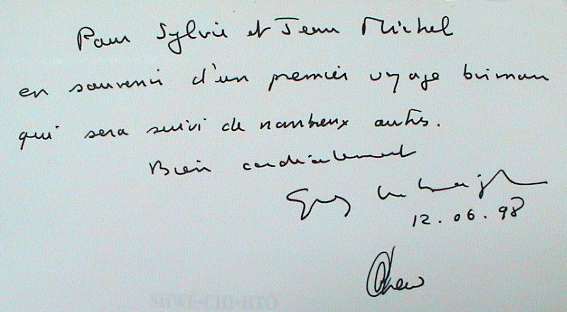 Pour Sylvie et Jean Michel
en souvenir d'un premier voyage birman
qui sera suivi de nombreux autres.
Bien cordialement
Guy
12.06.98